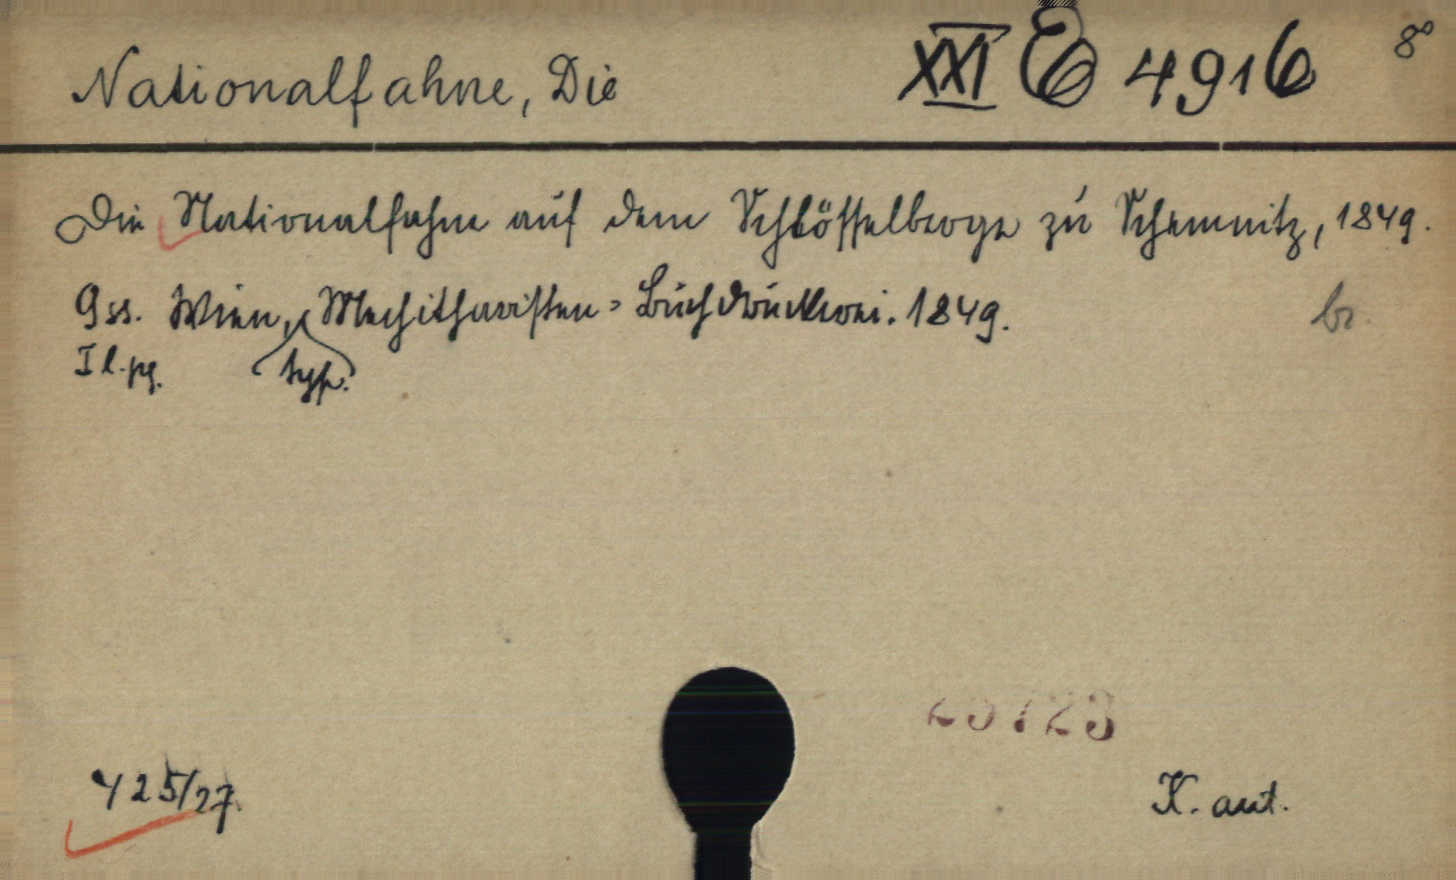 Nationalfahne, Die XXI E 4916 8°
Die Nationalfahne auf dem Schlösselberge zu Schemnitz, 1849.
9 ss. Wien, Mechitharisten-Buchdruckerei. 1849. br.
I l.pg. typ.
23723
425/27. K. aut.